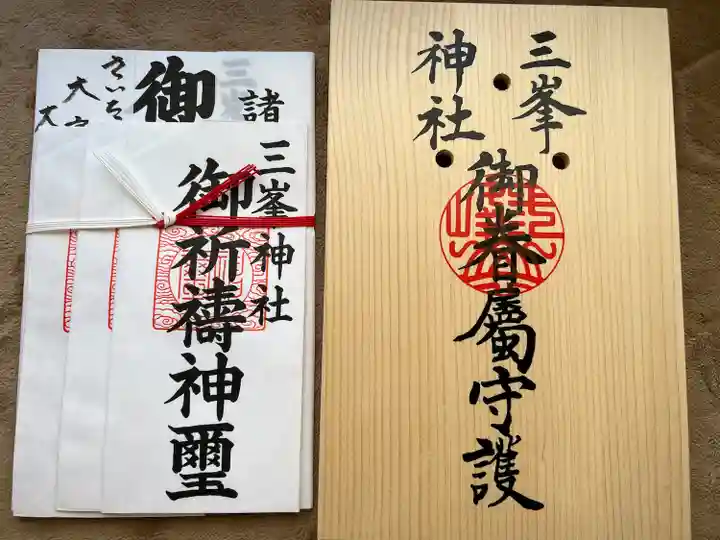 三峯
神社
御眷屬守護
三峯神社
御祈禱神璽
諸
御